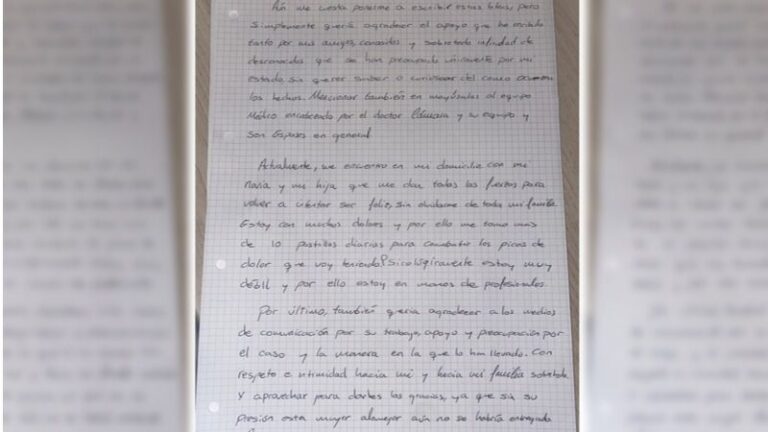 Aún me cuesta ponerme a escribir estas líneas, pero
simplemente quería agradecer el apoyo que he recibido
tanto por mis amigos, conocidos y sobretodo infinidad de
desconocidos que se han preocupado únicamente por mi
estado, sin querer saber o curiosear del como ocurrieron
los hechos. Mencionar también en mayúsculas al equipo
Médico encabezado por el doctor y su equipo y
Son Espases en general.
Actualmente, me encuentro en mi domicilio con mi
novia y mi hija que me dan todas las fuerzas para
volver a intentar ser feliz, sin olvidarme de toda mi familia.
Estoy con muchos dolores y por ello me tomo mas
de 10 pastillas diarias para combatir los picos de
dolor que voy teniendo. Psicológicamente estoy muy
débil y por ello estoy en manos de profesionales.
Por último, también quería agradecer a los medios
de comunicación por su trabajo, apoyo y preocupación por
el caso y la manera en la que lo han llevado. Con
respeto e intimidad hacia mí y hacia mi familia sobretodo
y aprovechar para darles las gracias, ya que sin su
presión esta mujer alomejor aún no se habría entregado